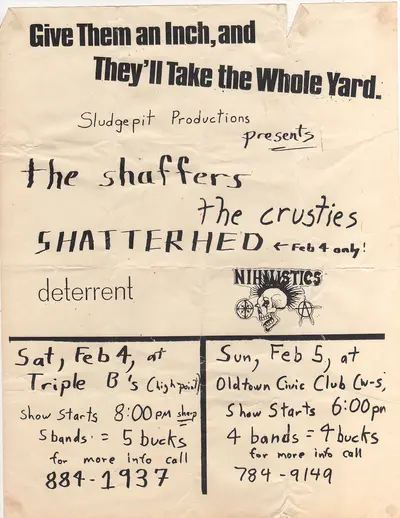 Give Them an Inch, and
They'll Take the Whole Yard.
Sludgepit Productions
presents
the shaffers
the crusties
SHATTERHED ← Feb 4 only!
deterrent
NIHILISTICS
Sat, Feb 4, at
Triple B's (high point)
Show Starts 8:00 PM sharp
5 bands = 5 bucks
for more info call
884-1937
Sun, Feb 5, at
Oldtown Civic Club (W-S)
Show Starts 6:00 pm
4 bands = 4 bucks
for more info call
784-9149